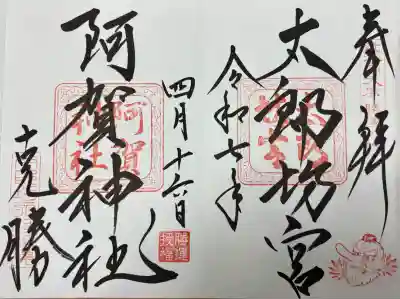 奉拝
太郎坊宮
令和七年
四月十六日
阿賀神社
克勝
阿賀
神社
勝運
授福